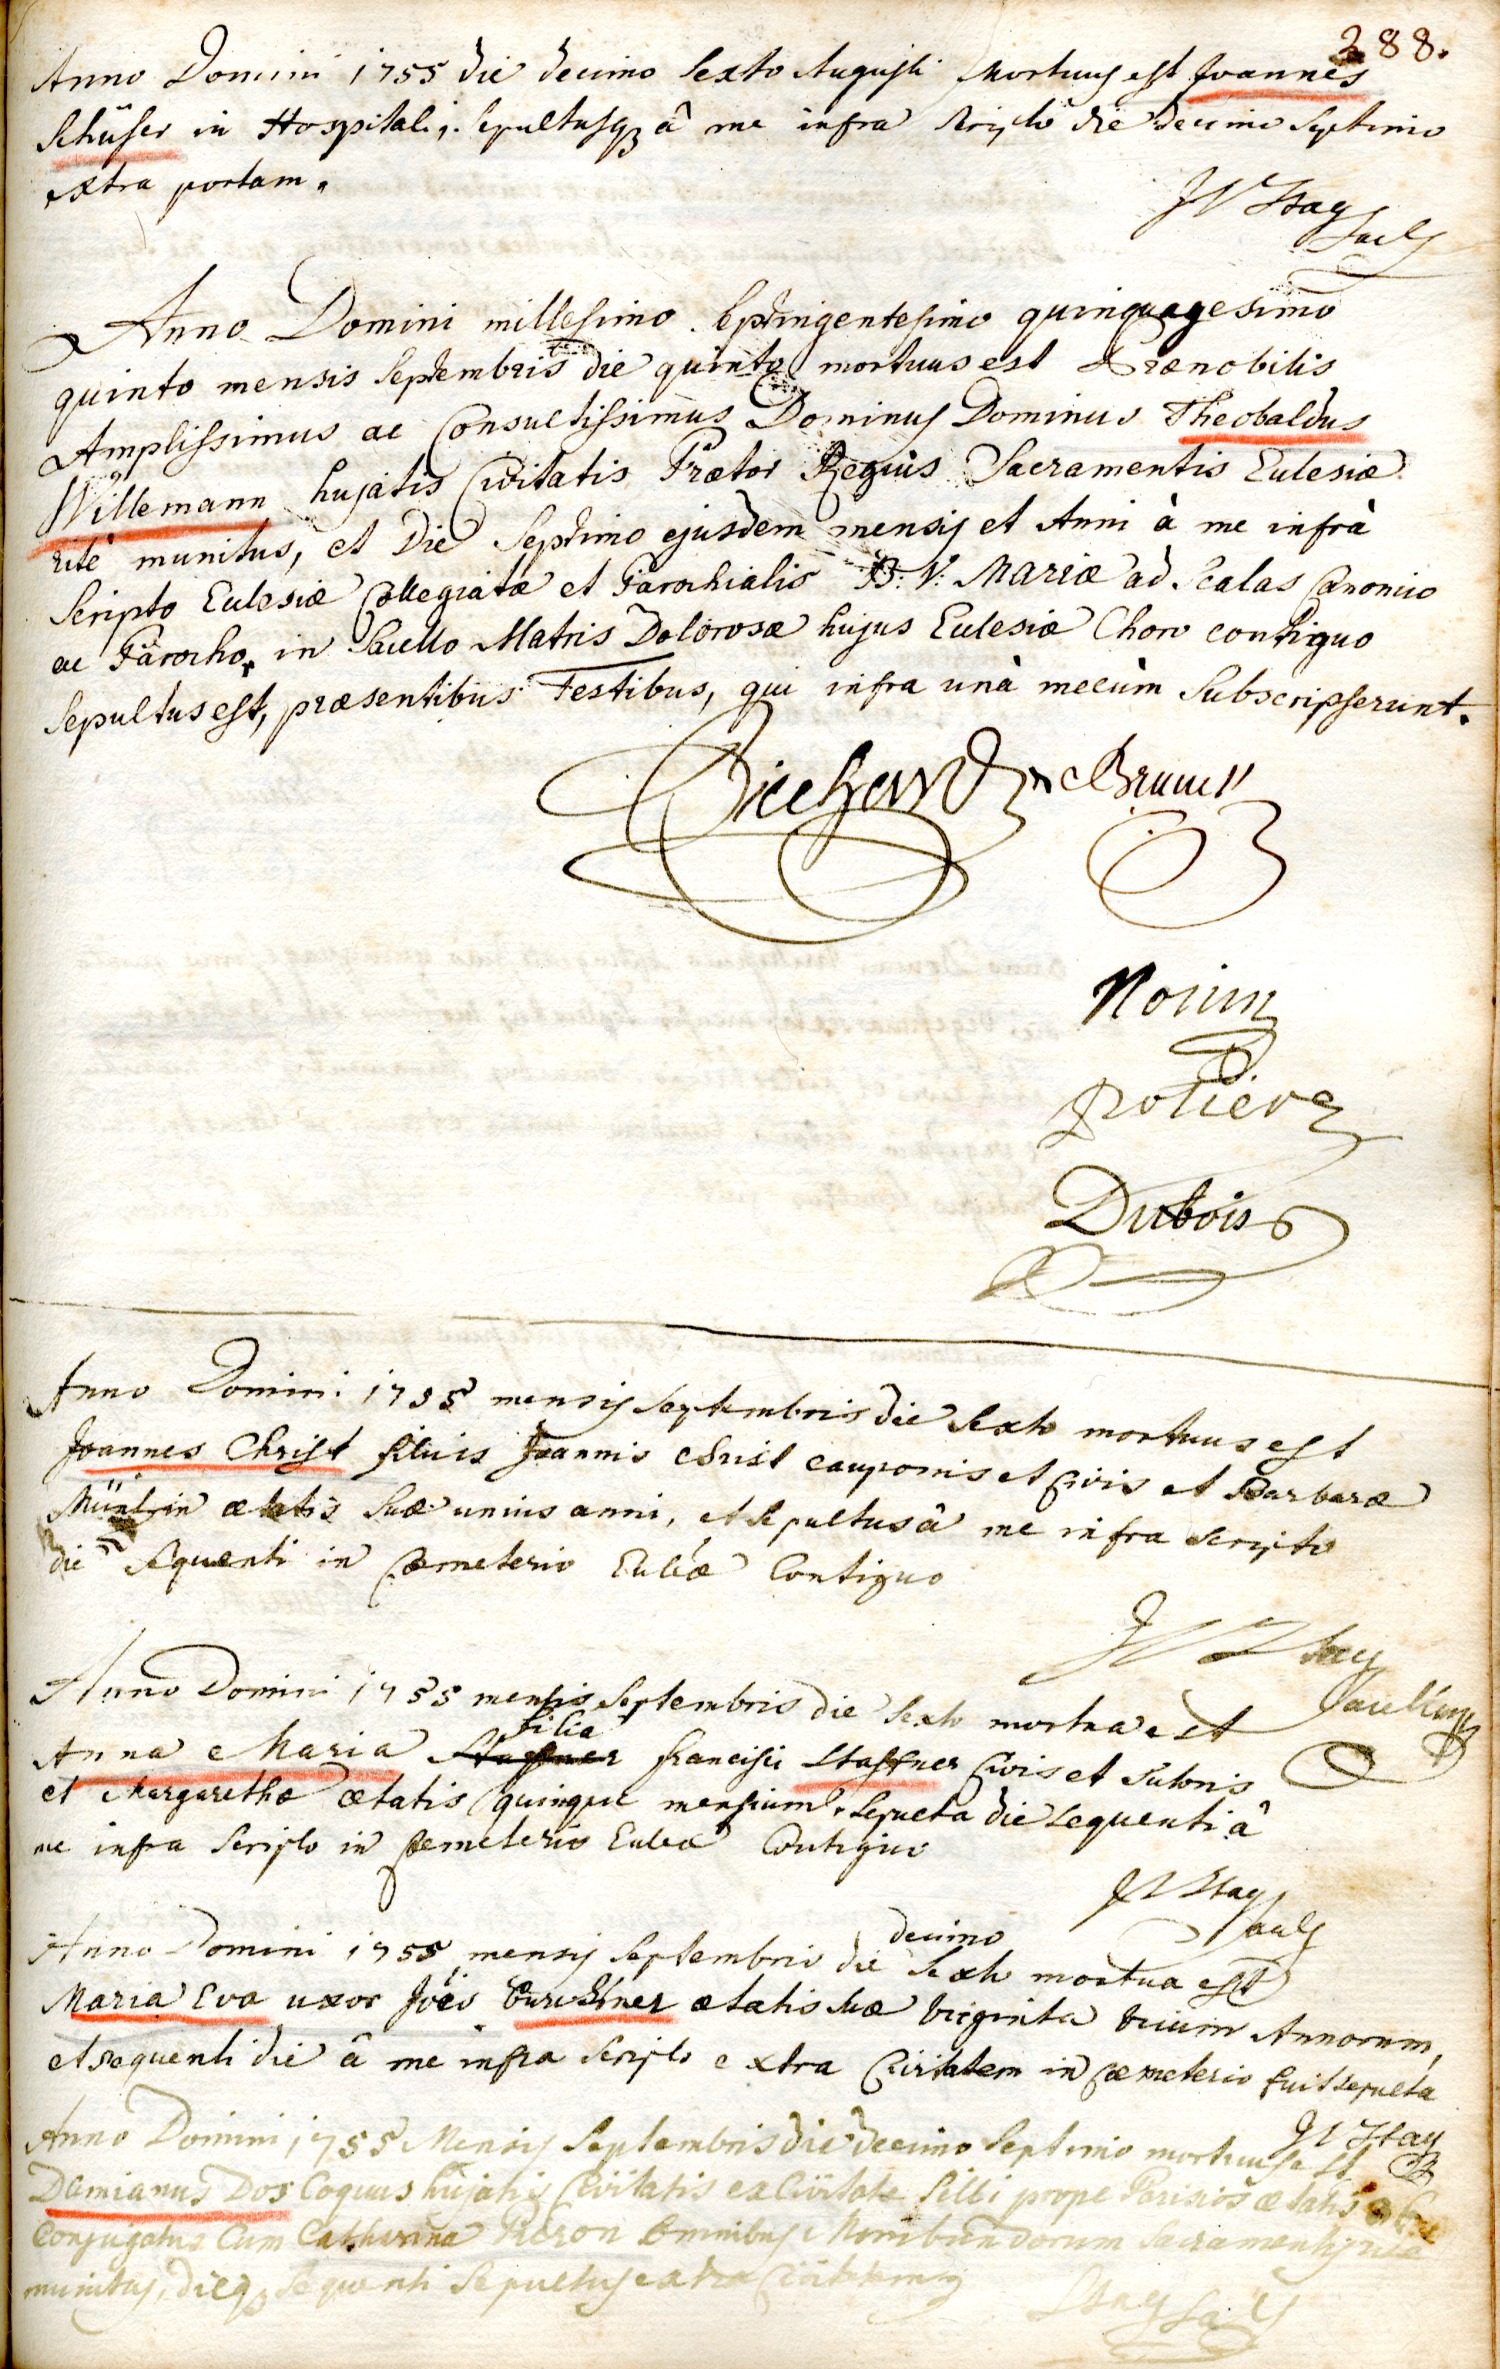 288.
Anno Domini 1755 die decimo sexto Augusti mortuus est Joannes
Schüser in Hospitali, sepultusq3 â me infra scripto die decimo septimo
extra portam.
JN Hag
Anno Domini millesimo septingentesimo quinquagesimo
quinto mensis Septembris die quinto mortuus est Prænobilis
Amplissimus ac Consultissimus Dominus Dominus Theobaldus
Willemann hujatis Civitatis Prætor Regius Sacramentis Eclesiæ
ritè munitus, et Die septimo ejusdem mensis et Anni à me infrà
scripto Eclesiæ Collegiatæ et Parochialis B: V: Mariæ ad Scalas Canonico
ac Parocho, in Sacello Matris Dolorosæ hujus Eclesiæ Choro contiguo
sepultus est, præsentibus Testibus, qui infra unà mecùm subscripserunt.
Richard
Dubois
Anno Domini 1755 mensis Septembris die sexto mortuus est
Joannes Christ filius Joannis Christ cauponis et Civis et Barbaræ
ætatis suæ unius anni, et sepultus â me infra scripto
die sequenti in Cœmeterio Ecleæ Contiguo
Anno Domini 1755 mensis Septembris die sexto mortua est
filia
Anna Maria Staffner Francisci Staffner Civis et Sutoris
et Margarethæ ætatis quinque mensium, sepulta die sequenti â
me infra scripto in Cemeterio Ecleæ Contiguo
JN Hag
decimo
Anno Domini 1755 mensis Septembris die sexto mortua est
Maria Eva uxor Jöes ætatis suæ triginta trium Annorum,
et sequenti die â me infra scripto extra Civitatem in Cœmeterio fuit sepulta
JN Hag
Anno Domini 1755 Mensis Septembris die decimo septimo mortuus est
Damianus Dos Coquus hujatis Civitatis ex Civitate prope Parisios ætatis
Conjugatus Cum Catharina omnibus Moribundorum Sacramentis
munitus, dieq3 sequenti sepultus extra Civitatem
Hag